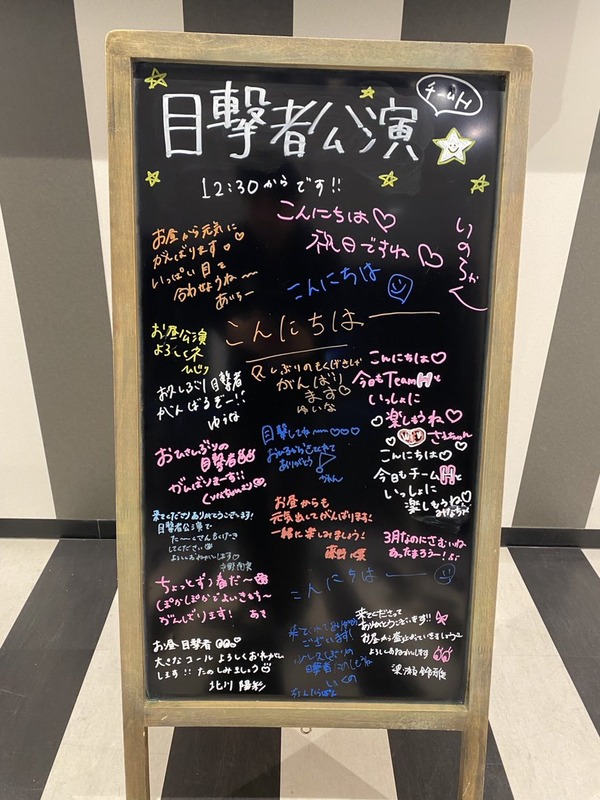 目撃者公演
チームH
12:30からです!!
こんにちは♡
祝日ですね♡
お昼から元気に
がんばります♡♡
いっぱい目を
合わせようね〜
あいちー
こんにちは
こんにちは
お昼公演
お久しぶり目撃者
がんばるぞー!!
ゆうな
がんばり
ます♡
ゆいな
こんにちは♡
今日もTeamHと
いっしょに
楽しもうね♡
こんにちは♡
今日もチームHと
いっしょに
楽しもうね♡
おひさしぶりの
目撃者
がんばりまーす!!
目撃してね〜♡♡♡
ありがとう
来てくださりありがとうございます!
目撃者公演で
してください
よろしくおねがいします♡
お昼からも
元気出してがんばります!
一緒に楽しみましょう!
3月なのにさむいね
あったまろうー!
ちょっとずつ春だ〜
ぽかぽかでよいきもち〜
がんばります!
こんにちは
来てくれてありがとう
ございます!
来てくださって
ありがとうございます!!
お昼から盛り上がっていきましょう
よろしくおねがいします
お昼目撃者
大きなコールよろしくおねがい
します!!たのしみましょう
北川 陽彩